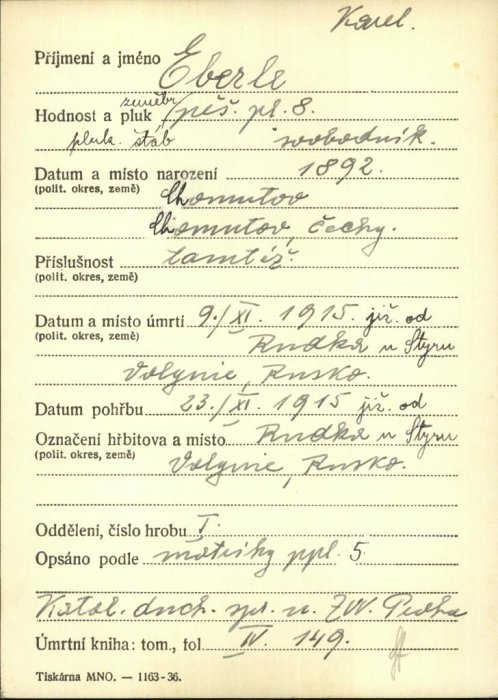 Karel.
Příjmení a jméno Eberle
Hodnost a pluk zeměbr. pěš. pl. 8.
pluk. štáb svobodník.
Datum a místo narození 1892.
(polit. okres, země) Chomutov
Chomutov, Čechy.
Příslušnost tamtéž.
(polit. okres, země)
Datum a místo úmrtí 9./XI. 1915 již. od
(polit. okres, země) Rudka u Styru
Volynie, Rusko.
Datum pohřbu 23./XI. 1915 již. od
Označení hřbitova a místo Rudka u Styru
(polit. okres, země) Volynie, Rusko.
Oddělení, číslo hrobu I.
Opsáno podle matriky ppl. 5
Katol. duch. spr. u ZVV. Praha
Úmrtní kniha: tom., fol IV. 149.
Tiskárna MNO. — 1163-36.